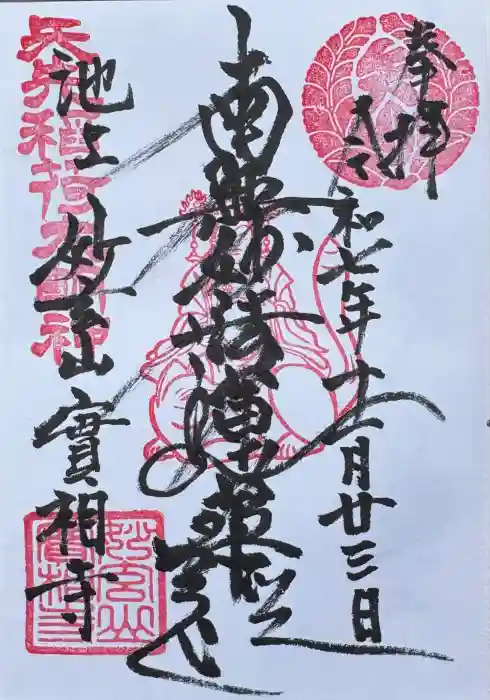 奉拝
令和七年十一月廿三日
南無妙法蓮華経
池上 妙玄山 實相寺
稲荷大明神
實相寺